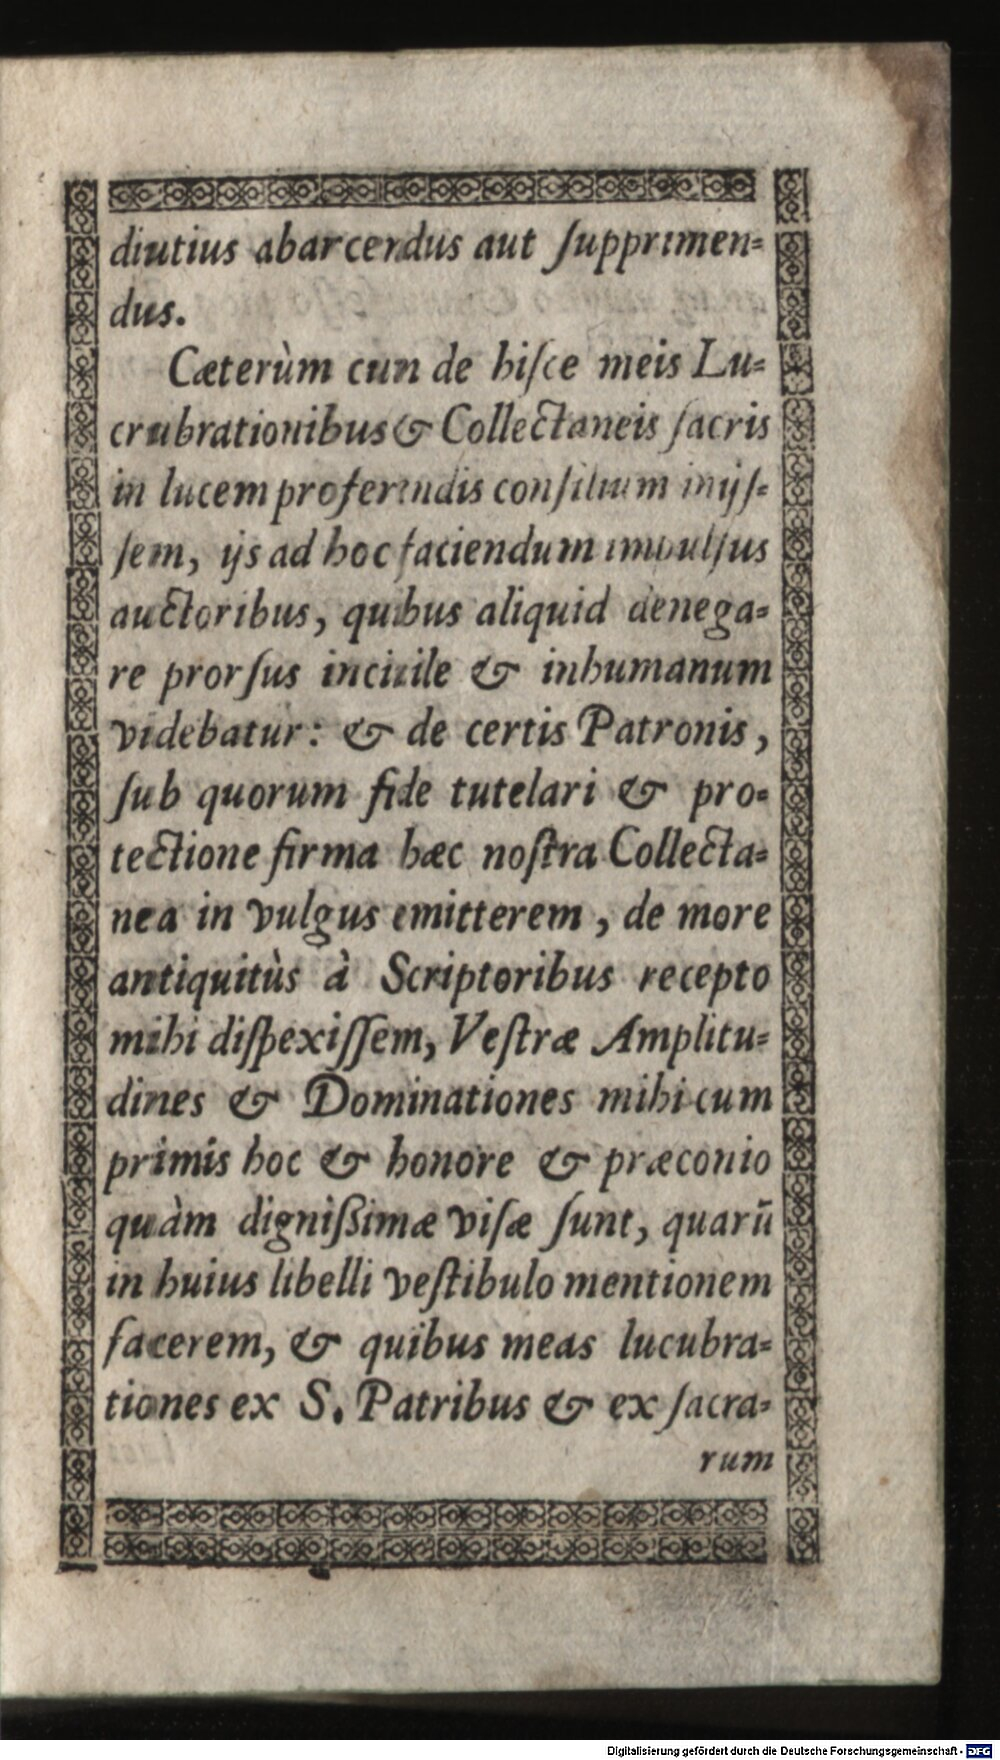 diutius abarcendus aut ſupprimen-
dus.
Cæterùm cun de hiſce meis Lu-
crubrationibus & Collectaneis ſacris
in lucem proferendis conſilium inijſ-
ſem, ijs ad hoc faciendum impulſus
auctoribus, quibus aliquid denega-
re prorſus inciuile & inhumanum
videbatur: & de certis Patronis,
ſub quorum fide tutelari & pro-
tectione firma hæc noſtra Collecta-
nea in vulgus emitterem, de more
antiquitùs à Scriptoribus recepto
mihi diſpexiſſem, Veſtræ Amplitu-
dines & Dominationes mihi cum
primis hoc & honore & præconio
quàm dignißimæ viſæ ſunt, quarū
in huius libelli veſtibulo mentionem
facerem, & quibus meas lucubra-
tiones ex S. Patribus & ex ſacra-
rum
Digitalisierung gefördert durch die Deutsche Forschungsgemeinschaft - DFG